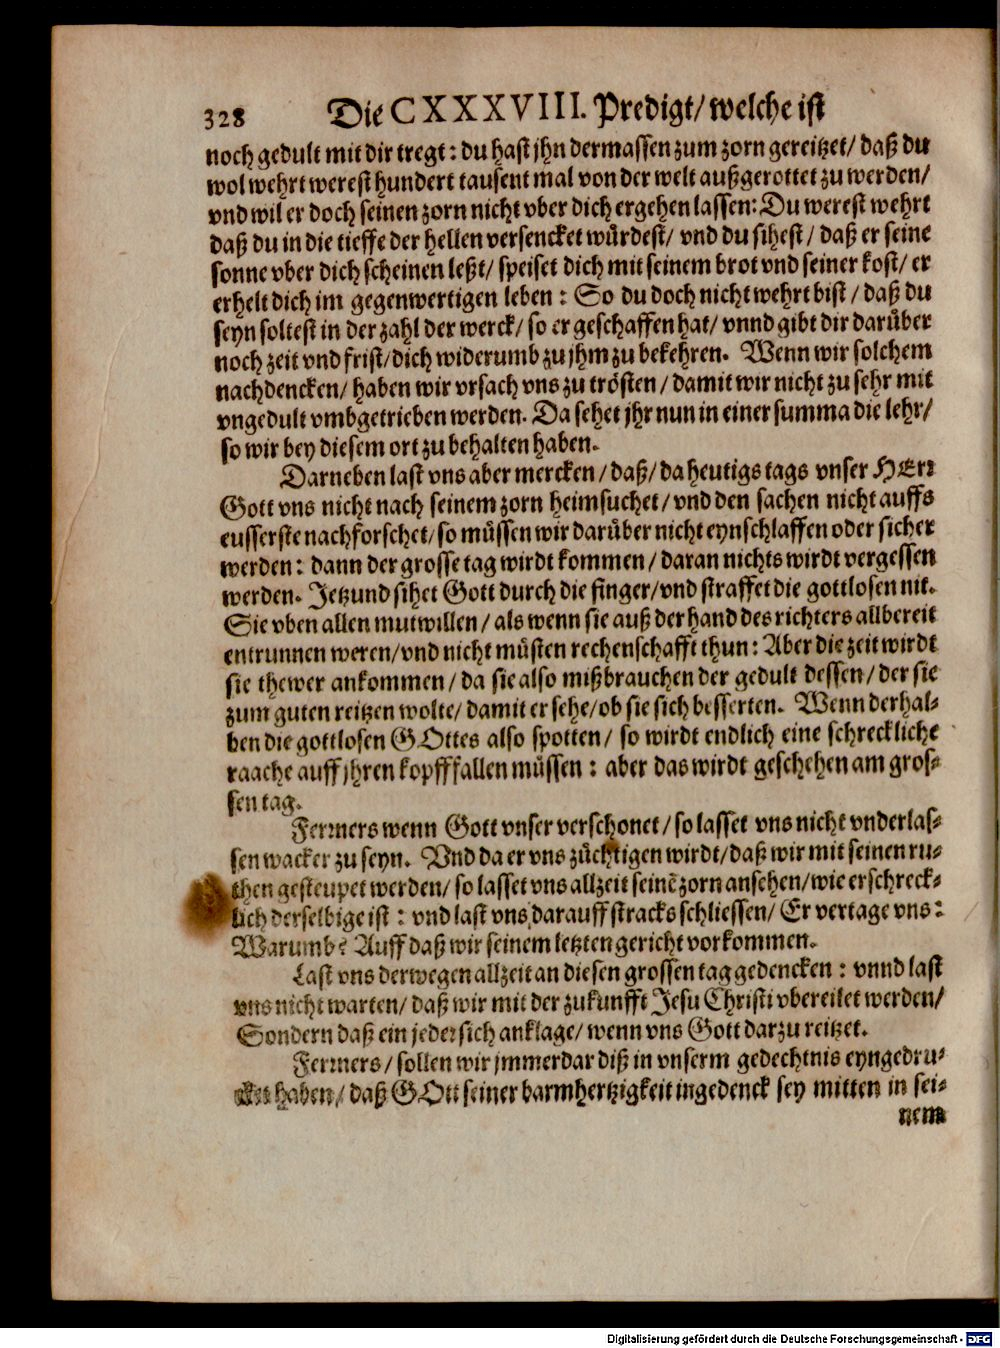 328 Die CXXXVIII. Predigt/ welche ist
noch gedult mit dir tregt: du hast jhn dermassen zum zorn gereitzet/ daß du
wol wehrt werest hundert tausent mal von der welt außgerottet zu werden/
vnd wil er doch seinen zorn nicht vber dich ergehen lassen: Du werest wehrt
daß du in die tieffe der hellen versencket würdest/ vnd du sihest/ daß er seine
sonne vber dich scheinen leßt/ speiset dich mit seinem brot vnd seiner kost/ er
erhelt dich im gegenwertigen leben: So du doch nicht wehrt bist/ daß du
seyn soltest in der zahl der werck/ so er geschaffen hat/ vnnd gibt dir darüber
noch zeit vnd frist/ dich widerumb zu jhm zu bekehren. Wenn wir solchem
nachdencken/ haben wir vrsach vns zu trösten/ damit wir nicht zu sehr mit
vngedult vmbgetrieben werden. Da sehet jhr nun in einer summa die lehr/
so wir bey diesem ort zu behalten haben.
Darneben last vns aber mercken/ daß/ da heutigs tags vnser HErr
Gott vns nicht nach seinem zorn heimsuchet/ vnd den sachen nicht auffs
eusserste nachforschet/ so müssen wir darüber nicht eynschlaffen oder sicher
werden: dann der grosse tag wirdt kommen/ daran nichts wirdt vergessen
werden. Jetzund sihet Gott durch die finger/ vnd straffet die gottlosen nit.
Sie vben allen mutwillen/ als wenn sie auß der hand des richters allbereit
entrunnen weren/ vnd nicht müsten rechenschafft thun: Aber die zeit wirdt
sie thewer ankommen/ da sie also mißbrauchen der gedult dessen/ der sie
zum guten reitzen wolte/ damit er sehe/ ob sie sich besserten. Wenn derhal-
ben die gottlosen GOttes also spotten/ so wirdt endlich eine schreckliche
raache auff jhren kopff fallen müssen: aber das wirdt geschehen am gros-
sen tag.
Ferrners wenn Gott vnser verschonet/ so lasset vns nicht vnderlas-
sen wacker zu seyn. Vnd da er vns züchtigen wirdt/ daß wir mit seinen ru-
then gesteupet werden/ so lasset vns allzeit seinē zorn ansehen/ wie erschreck-
lich derselbige ist: vnd last vns darauff stracks schliessen/ Er vertage vns:
Warumb? Auff daß wir seinem letzten gericht vorkommen.
Last vns derwegen allzeit an diesen grossen tag gedencken: vnnd last
vns nicht warten/ daß wir mit der zukunfft Jesu Christi vbereilet werden/
Sondern daß ein jeder sich anklage/ wenn vns Gott darzu reitzet.
Ferrners/ sollen wir jmmerdar diß in vnserm gedechtnis eyngedru-
cket haben/ daß GOtt seiner barmhertzigkeit ingedenck sey mitten in sei-
nem
Digitalisierung gefördert durch die Deutsche Forschungsgemeinschaft - DFG